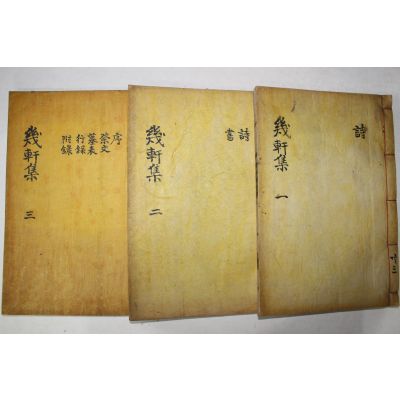 詩
幾軒集 一
共三
詩
書
幾軒集 二
序
祭文
墓表
行錄
附錄
幾軒集 三